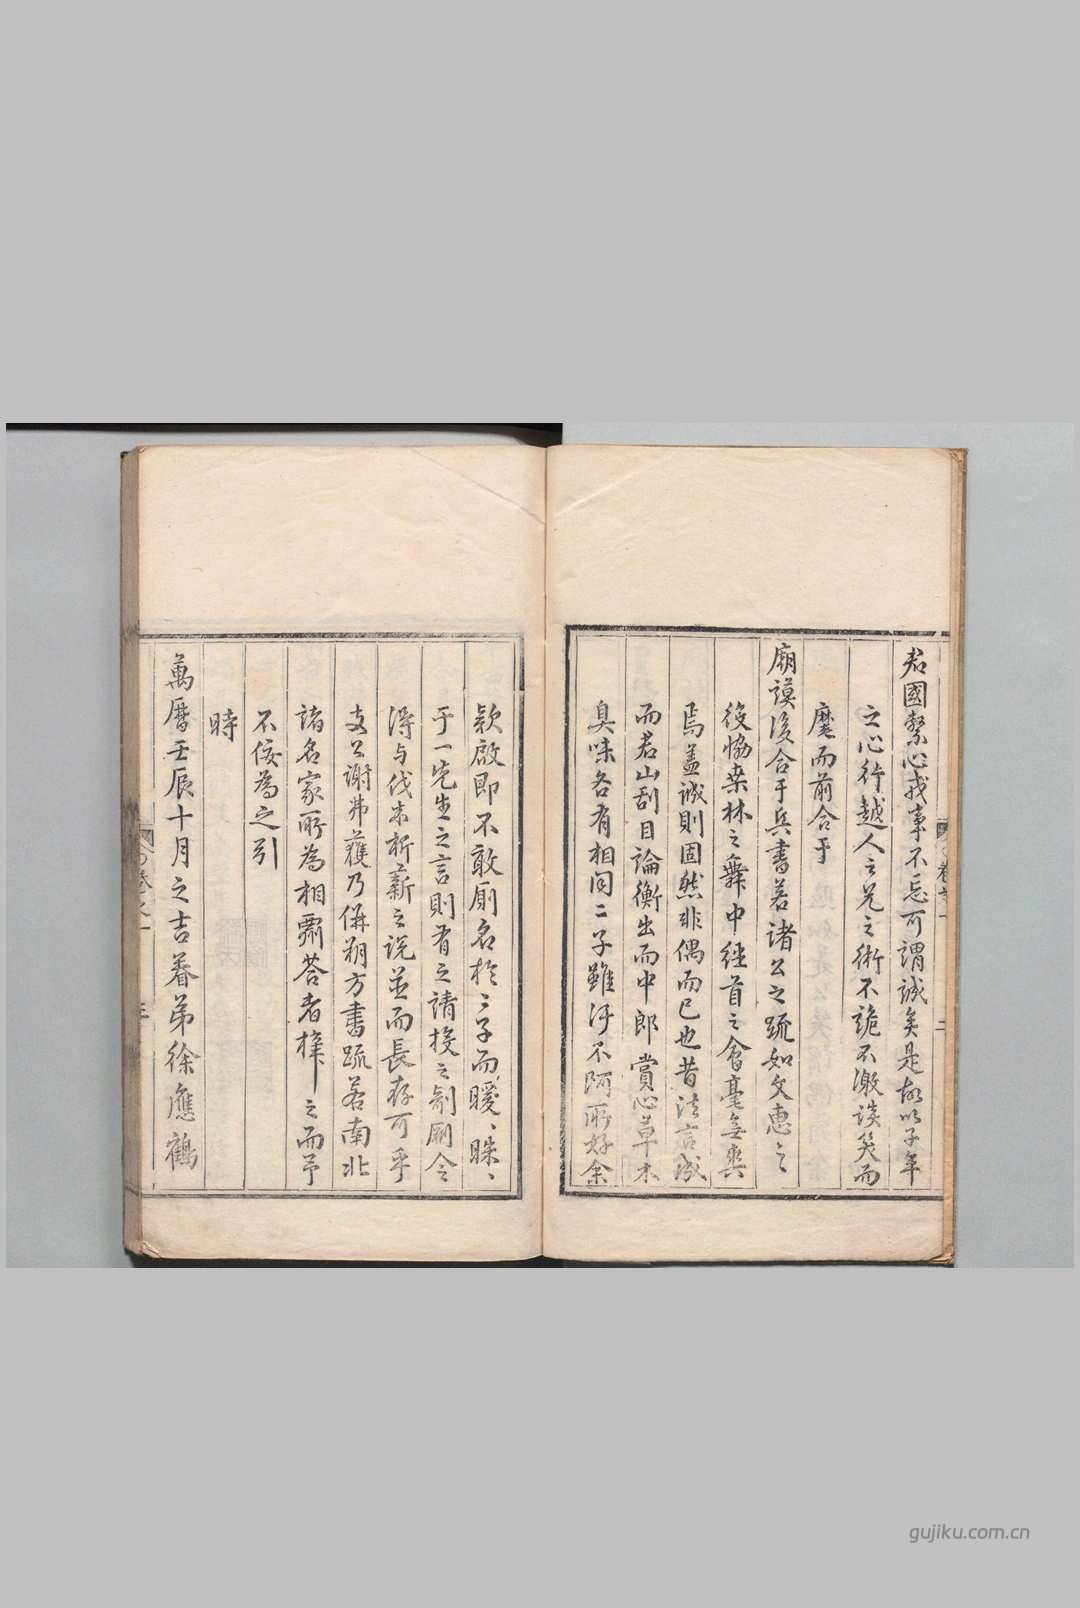 君國繫心我事不忘可謂誠矣是故以子年
之心行越人之兄之術不詭不激談笑而
麾而前合于
廟謨後合于兵書若諸公之疏如文惠之
後恊桒林之舞中經首之會毫無爽
焉盖誠則固然非偶而已也昔法言成
而君山刮目論衡出而中郎賞心草木
臭味各有相同二子雖汙不阿所好余
欵啟即不敢厠名於二子而暖、姝、
于一先生之言則有之請授之剞厠今
得与伐朱析薪之説並而長存可乎
支公謝弗獲乃併朔方書疏若南北
諸名家所為相霨荅者梓之而予
不佞為之引
時
萬曆壬辰十月之吉眷弟徐應鶴
gujiku.com.cn